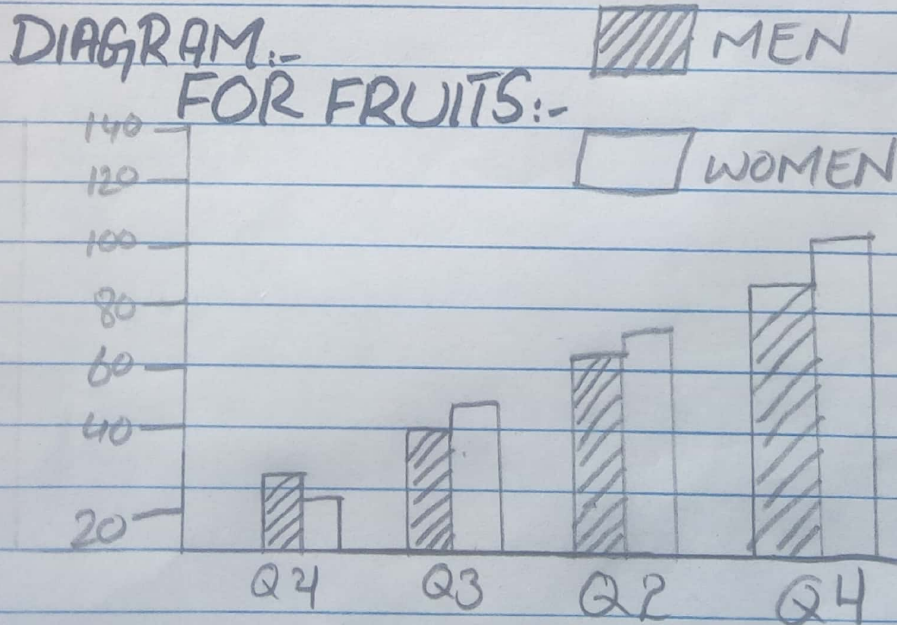 DIAGRAM:-
MEN
FOR FRUITS:-
WOMEN
140
120
100
80
60
40
20
Q4 Q3 Q2 Q4